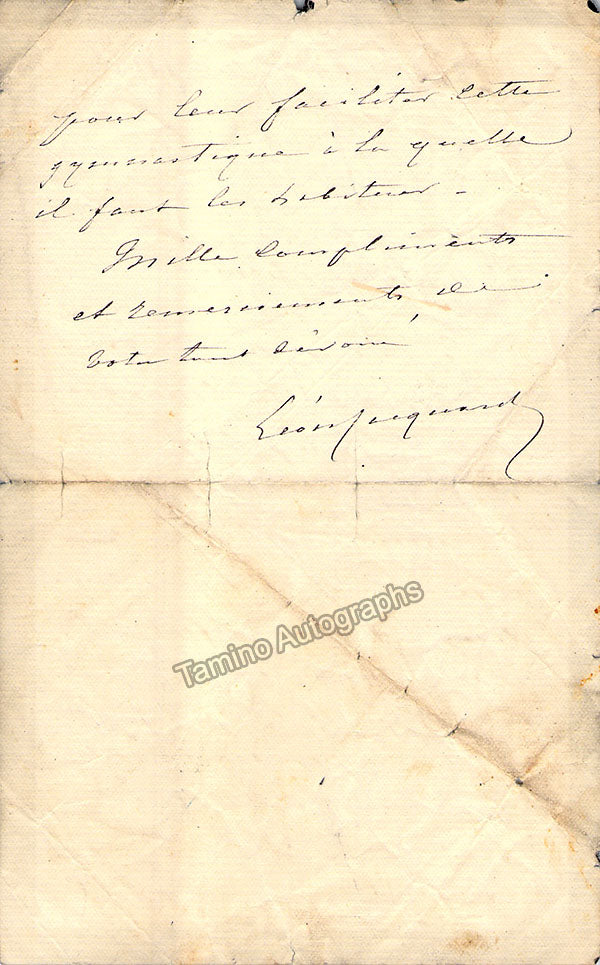 pour leur faciliter cette
gymnastique à la quelle
il faut les habituer -
Mille compliments
et remerciements de
votre tout dévoué
Léon Jacquard
Tamino Autographs